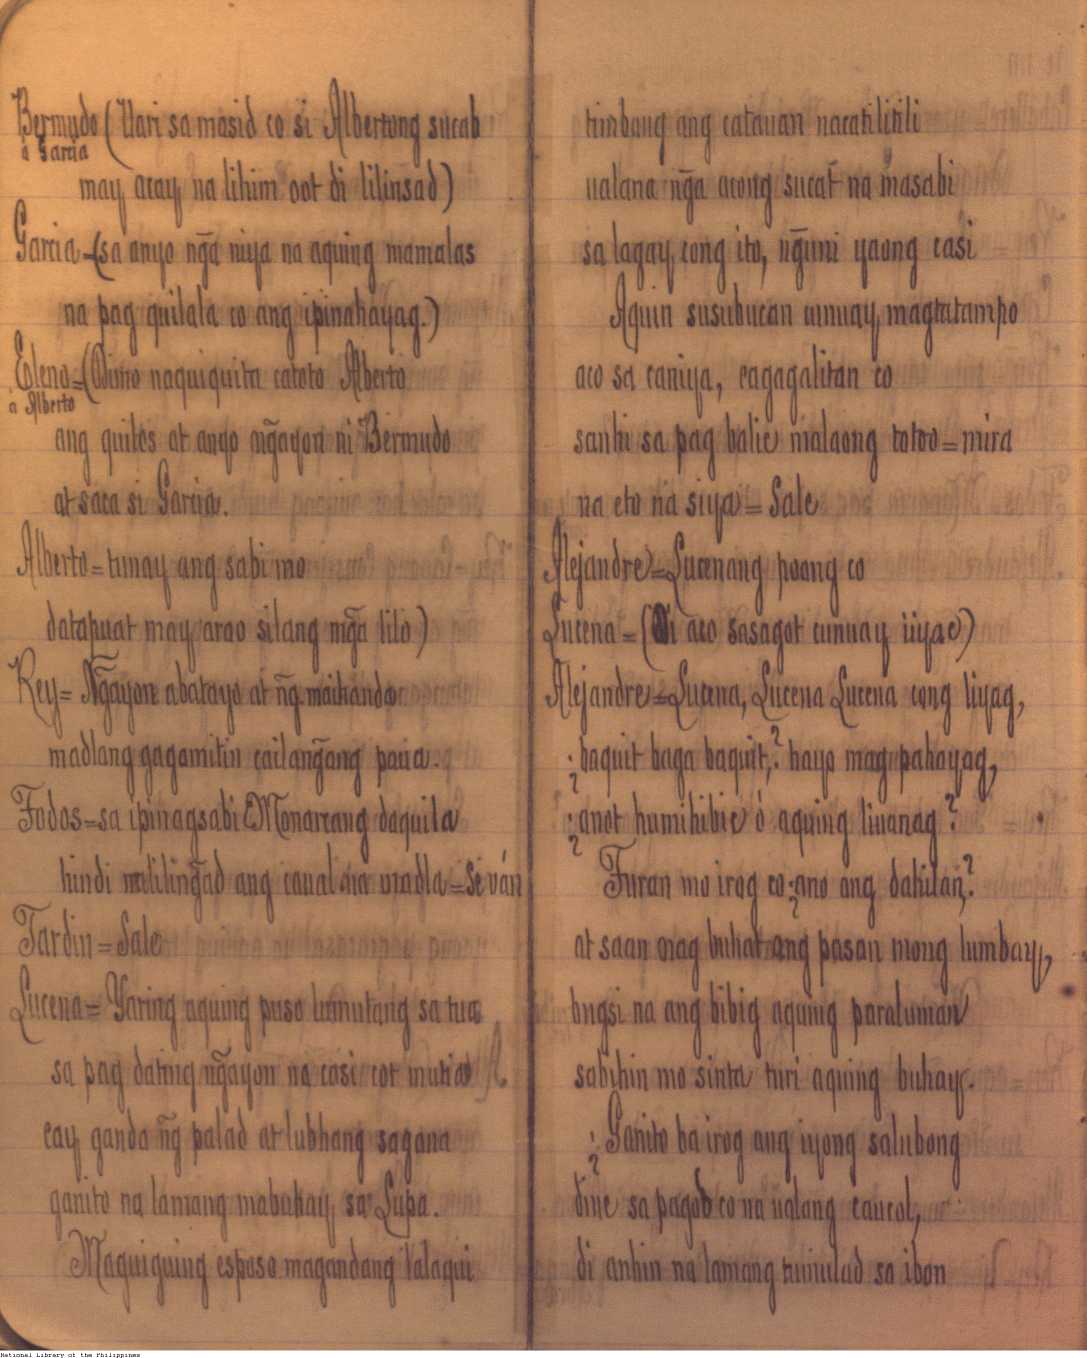 Bermudo (Uari sa masid co si Albertong sucab
á Garcia
may acay na lihim oot di lilinsad)
Garcia - (sa anyo ng̃a niya na aquing mamalas
na pag quilala co ang ipinahayag.)
Eleno = (Dimo naquiquita catoto Alberto
á Alberto
ang quites at anyo ng̃ayon ni Bermudo
at saca si Garcia.
Alberto = tunay ang sabi mo
datapuat may arao silang mg̃a lilo)
Rey = Ng̃ayon abatayo at ng̃ maihanda
madlang gagamitin cailang̃ang paua.
Todos = sa ipinagsabi Monarcang daquila
hindi maliling̃ad ang caual na madla = Se ván
Jardin = Sale
Lucena = Yaring aquing puso lumutang sa tua
sa pag dating ng̃ayon na casi cot mutia
cay ganda ng̃ palad at lubhang sagana
ganito na lamang mabuhay sa Lupa.
Maguiguing esposo magandang lalaqui
timbang ang catauan nacatilitili
ualana ng̃a acong sucat na masabi
sa lagay cong ito, ng̃uni yaong casi
Aquin susubucan cunuay magtatampo
aco sa caniya, cagagalitan co
sanhi sa pag balic malaong totoo = mira
na eto na siya = Sale
Alejandre = Lucenang poong co
Lucena = (Di aco sasagot cunuay iiyac)
Alejandre = Lucena, Lucena Lucena cong liyag,
¿baquit baga baquit,? hayo mag pahayag,
¿anot humihibic ó aquing liuanag?
Turan mo irog co ¿ano ang dahilan,?
at saan nag buhat ang pasan mong lumbay,
bugsi na ang bibig aquing paraluman
sabihin mo sinta turi aquing buhay.
¿Ganito ba irog ang iyong salubong
dine sa pagod co na ualang caucol,
di anhin na lamang tumulad sa ibon
National Library of the Philippines